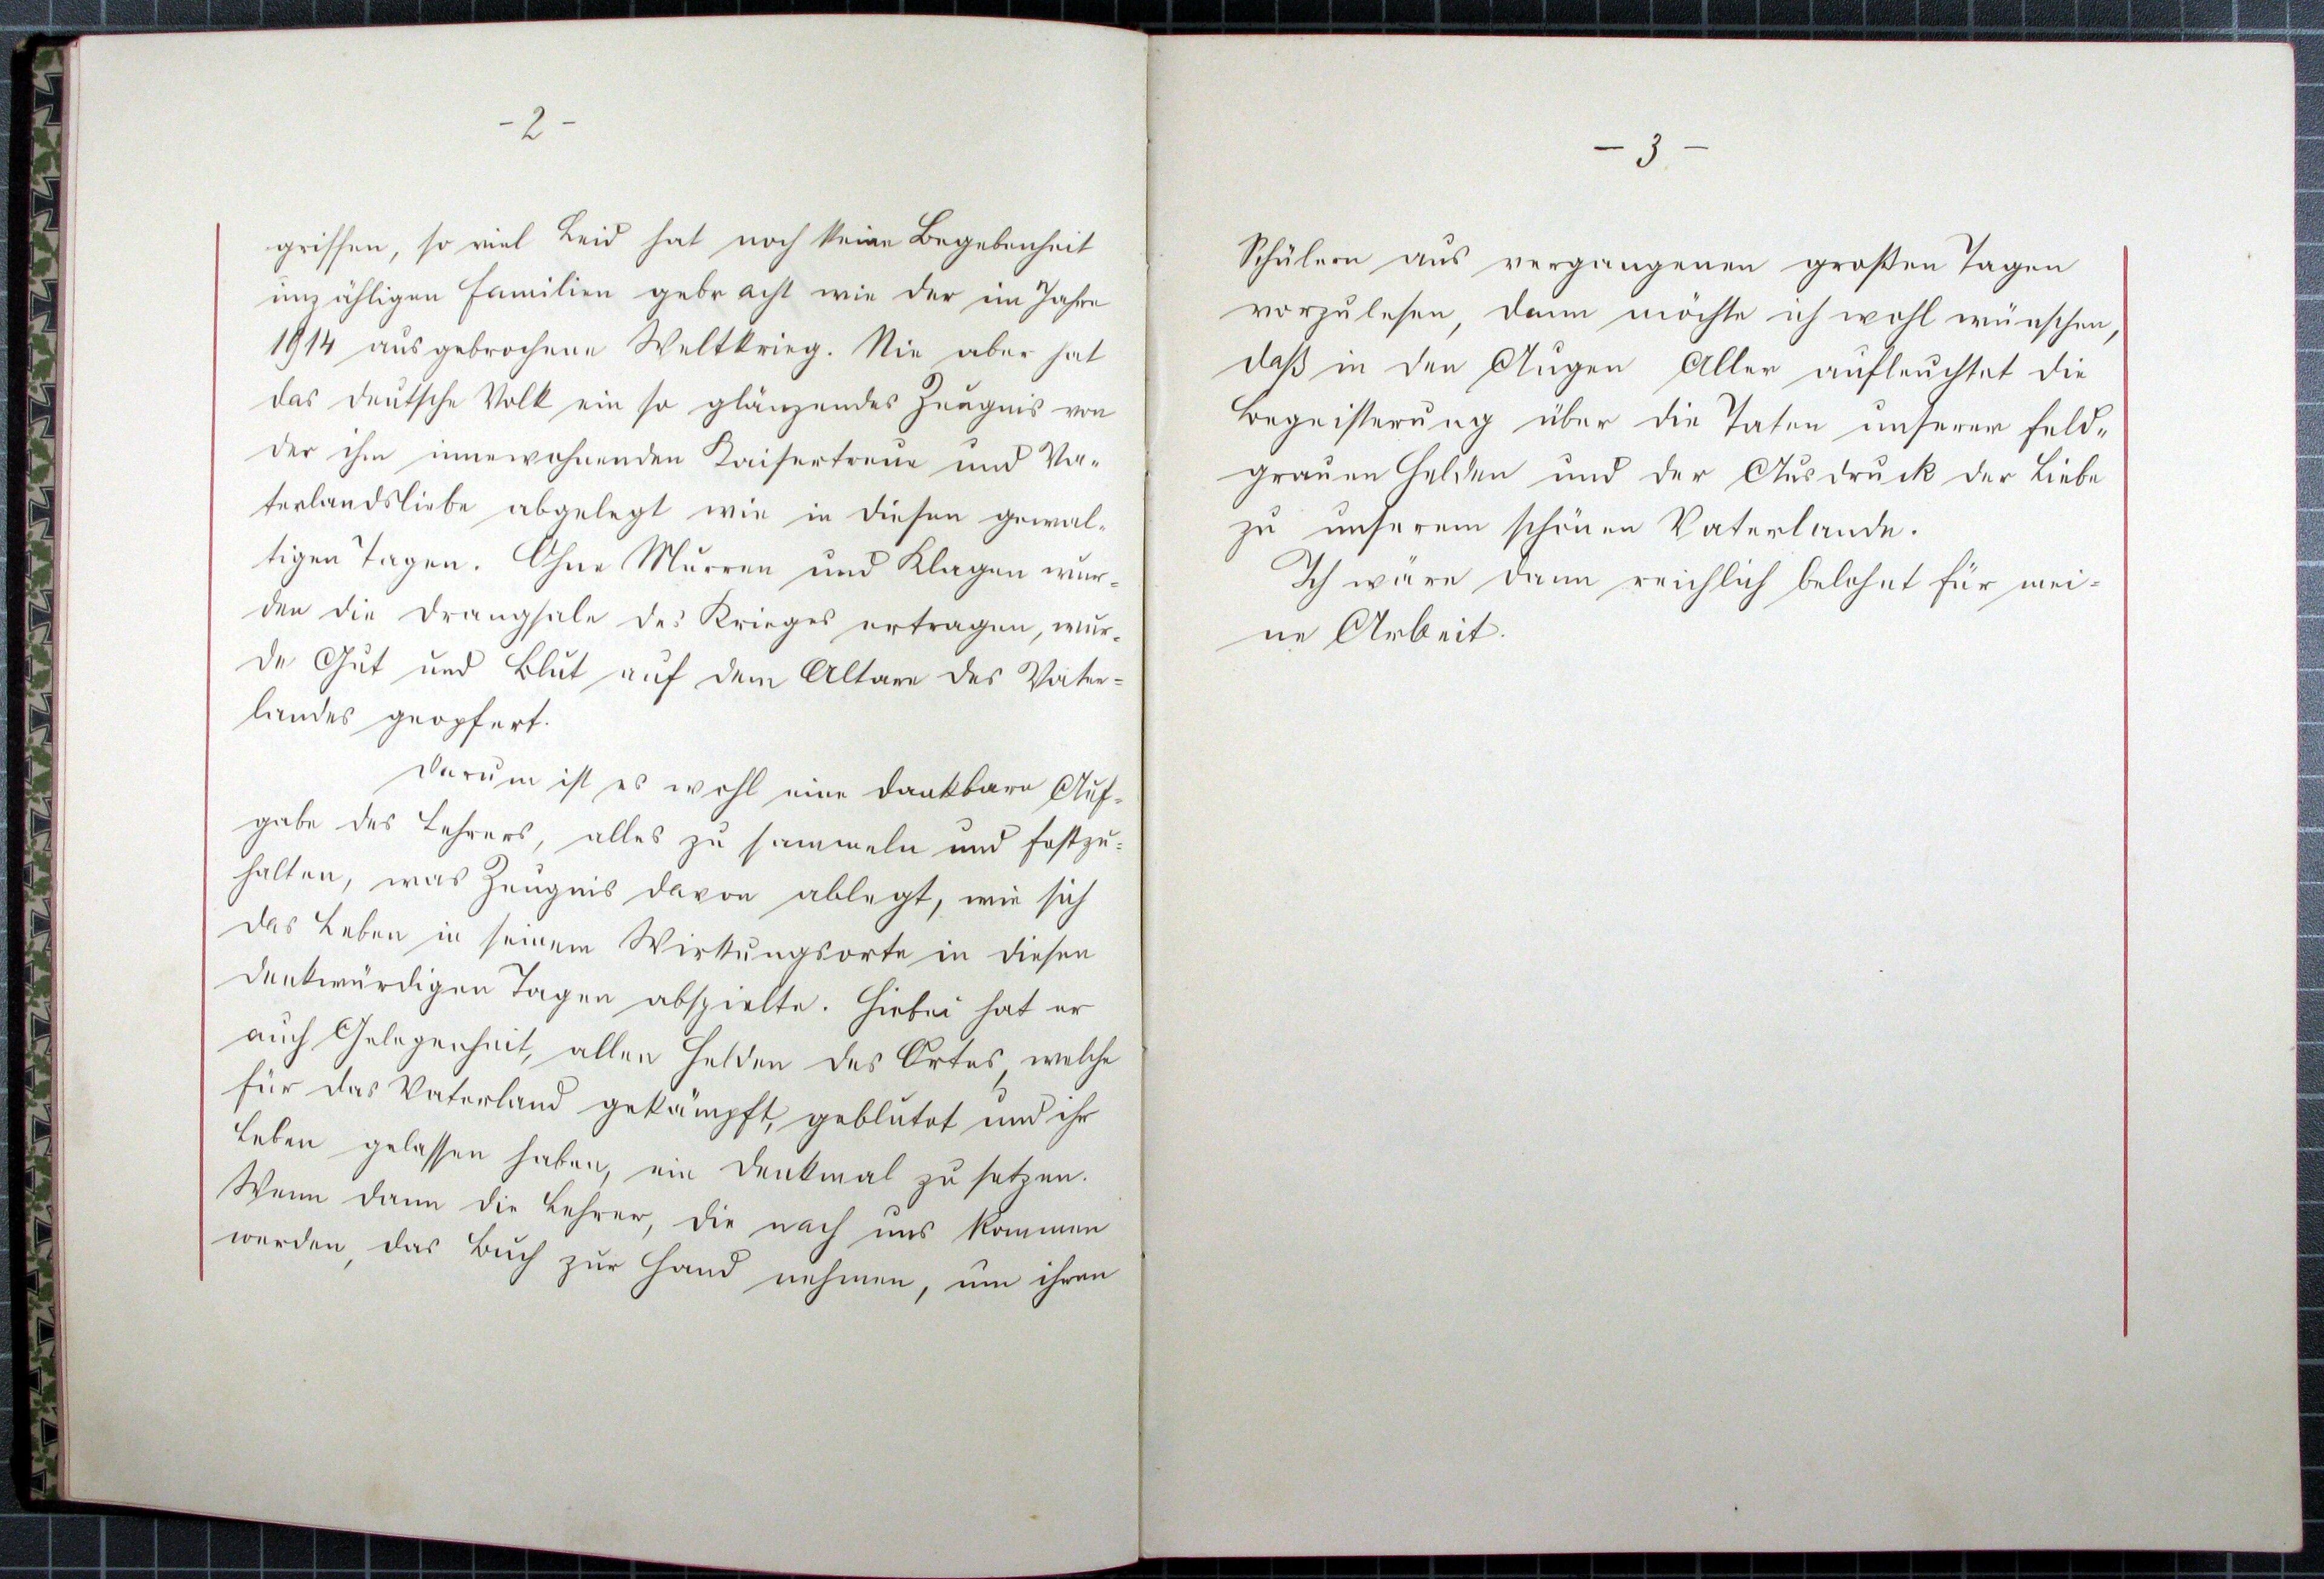 - 2 -
griffen, so viel Leid hat noch keine Begebenheit
unzähligen Familien gebracht wie der im Jahre
1914 ausgebrochene Weltkrieg. Nie aber hat
das deutsche Volk ein so glänzendes Zeugnis von
der ihm innewohnenden Kaisertreue und Va-
terlandsliebe abgelegt wie in diesen gewal-
tigen Tagen. Ohne Murren und Klagen wur-
den die Drangsale des Krieges ertragen, wur-
de Gut und Blut auf dem Altare des Vater=
landes geopfert.
Darum ist es wohl eine dankbare Auf-
gabe des Lehrers, alles zu sammeln und festzu=
halten, was Zeugnis davon ablegt, wie sich
das Leben in seinem Wirkungsorte in diesen
denkwürdigen Tagen abspielte. Hiebei hat er
auch Gelegenheit, allen Helden des Ortes, welche
für das Vaterland gekämpft, geblutet und ihr
Leben gelassen haben, ein Denkmal zu setzen.
Wenn dann die Lehrer, die nach uns kommen
werden, das Buch zur Hand nehmen, um ihren
- 3 -
Schülern aus vergangenen großen Tagen
vorzulesen, dann möchte ich wohl wünschen,
daß in den Augen Aller aufleuchtet die
Begeisterung über die Taten unserer feld-
grauen Helden und der Ausdruck der Liebe
zu unserem schönen Vaterlande.
Ich wäre dann reichlich belohnt für mei=
ne Arbeit.